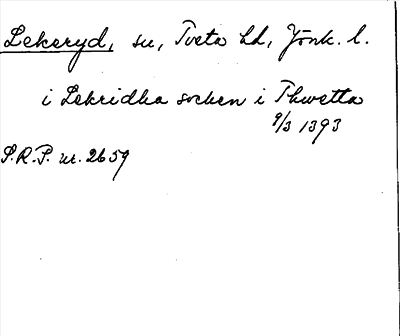 Lekeryd, sn, Tveta hd, Jönk. l.
i Lekridha socken i Thwetta
9/3 1393
S.R.P. nr. 2659